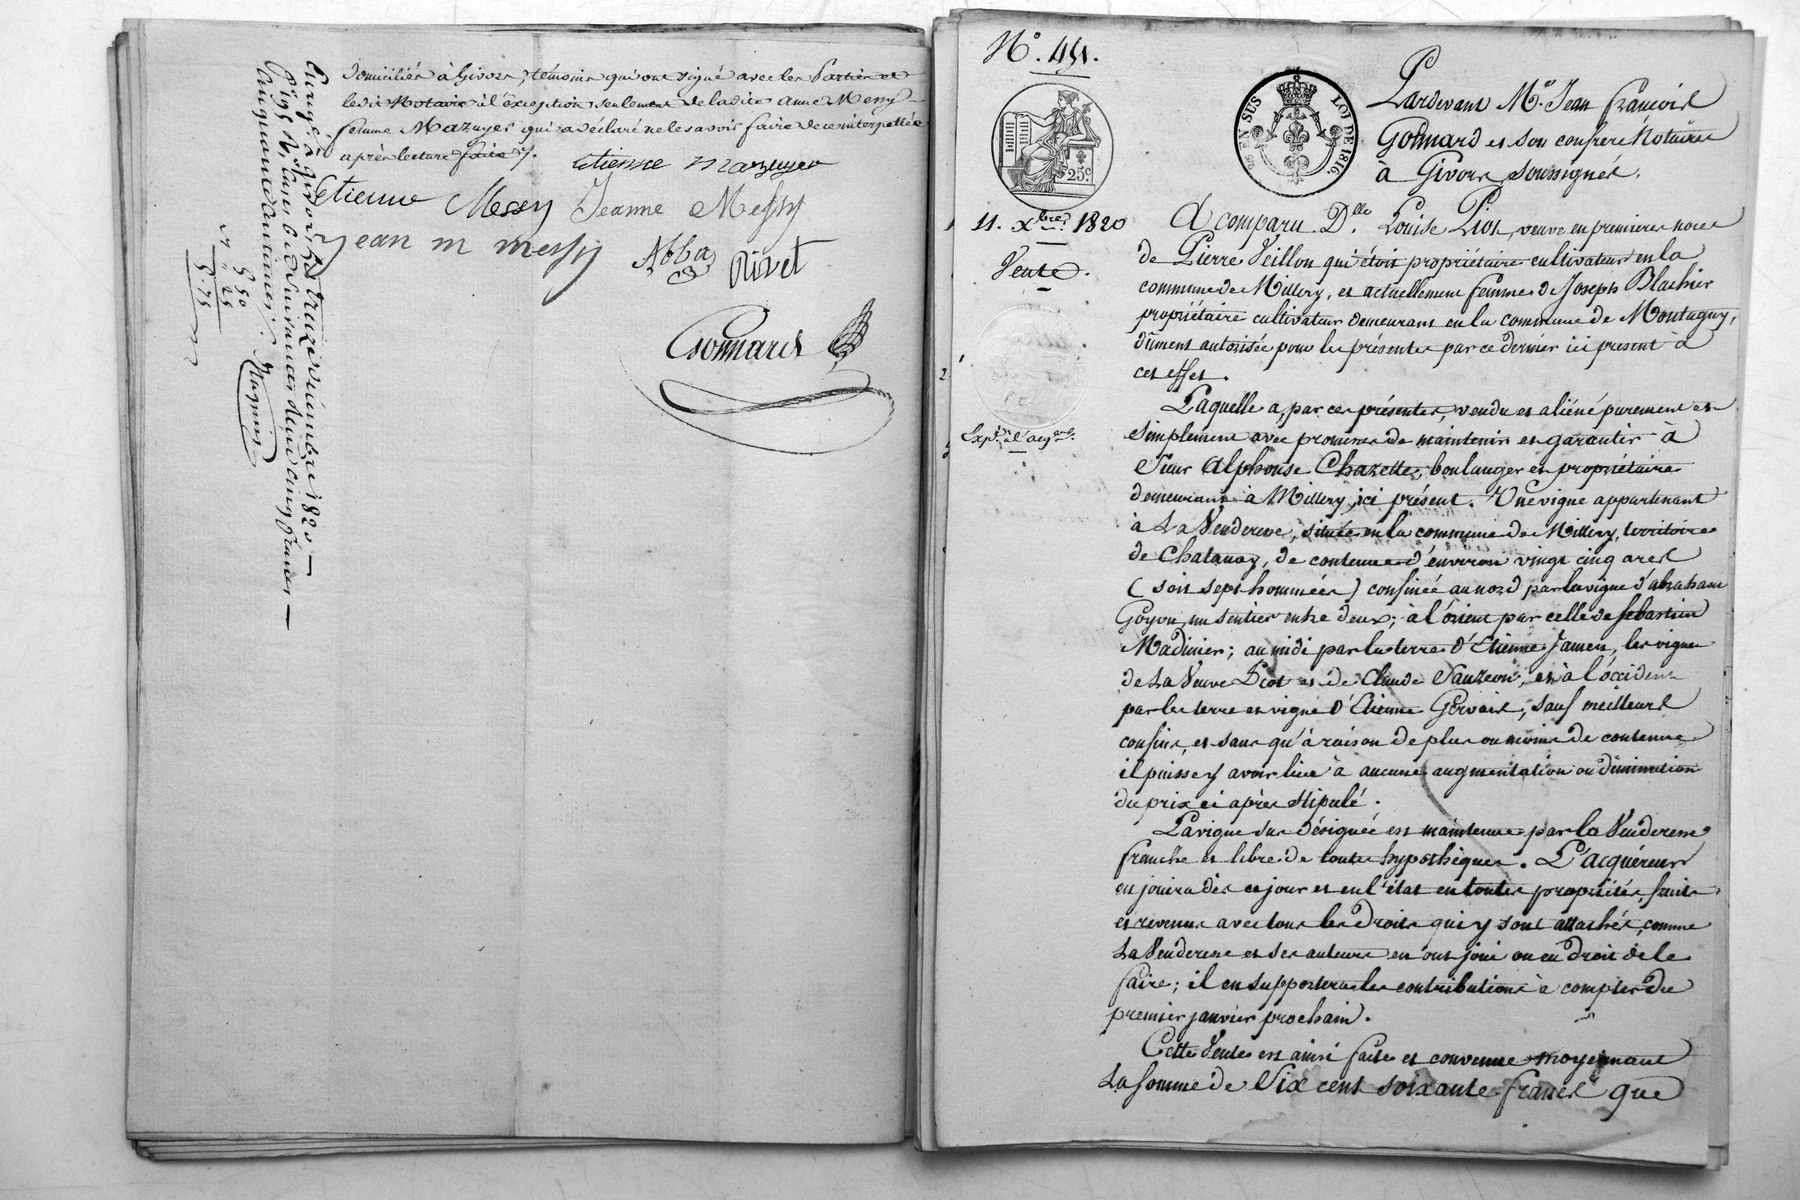 domiciliés à Givors, témoins qui ont signé avec les Parties et
ledit Notaire à l'exception seulement de ladite anne Messy
femme Mazuyer qui a déclaré ne le savoir faire de ce interpellée
après lecture faite
Etienne mazuyer
Etienne Messy Jeanne Messy
jean m messy
Rivet
Gonnard
Enrgé à givors, le treize décembre 1820
cinquante centimes
5 50
" 25
5.75
N.° 451.
25c.
EN SUS
LOI DE 1816.
Pardevant M.e Jean françois
Gonnard et son confrère Notaires
à Givors soussignés.
11. Xbre. 1820
Vente.
A comparu D.lle Louise Piot, veuve en premieres noces
de Pierre Veillon qui étoit propriétaire cultivateur en la
commune de Millery, et actuellement femme de Joseph Blachier
propriétaire cultivateur demeurant en la commune de Montagny,
dûment autorisée pour les présentes par ce dernier ici present à
cet effet.
Laquelle a, par ces présentes, vendu et aliéné purement et
simplement avec promesse de maintenir et garantir à
Sieur Alphonse Chazette, boulanger et propriétaire
demeurant à Millery, ici présent. Une vigne appartenant
à La Venderesse, située en la commune de Millery, territoire
de Chatanay, de contenue d'environ vingt cinq ares
(soit sept hommées) confinée au nord par la vigne d'abraham
Goyon, un sentier entre deux; à l'orient par celle de sebastien
Madinier; au midi par la terre d'Etienne Jamen, les vignes
de La Veuve Piot et de Claude Vauzeon, et à l'occident
par les terre et vigne d'Etienne Gervais, sauf meilleurs
confins, et sans qu'à raison de plus ou moins de contenue
il puisse y avoir lieu à aucune augmentation ou diminution
du prix ci après stipulé.
La vigne sus désignée est maintenue par la Venderesse
franche et libre de toutes hypothèques. L'acquéreur
en jouira dès ce jour et en l'état en toutes propriétés, fruits
et revenus avec tous les droits qui y sont attachés, comme
La Venderesse et ses auteurs en ont joui ou eu droit de le
faire; il en supportera les contributions à compter du
premier janvier prochain.
Cette Vente est ainsi faite et convenue moyennant
La somme de Six cent soixante francs que